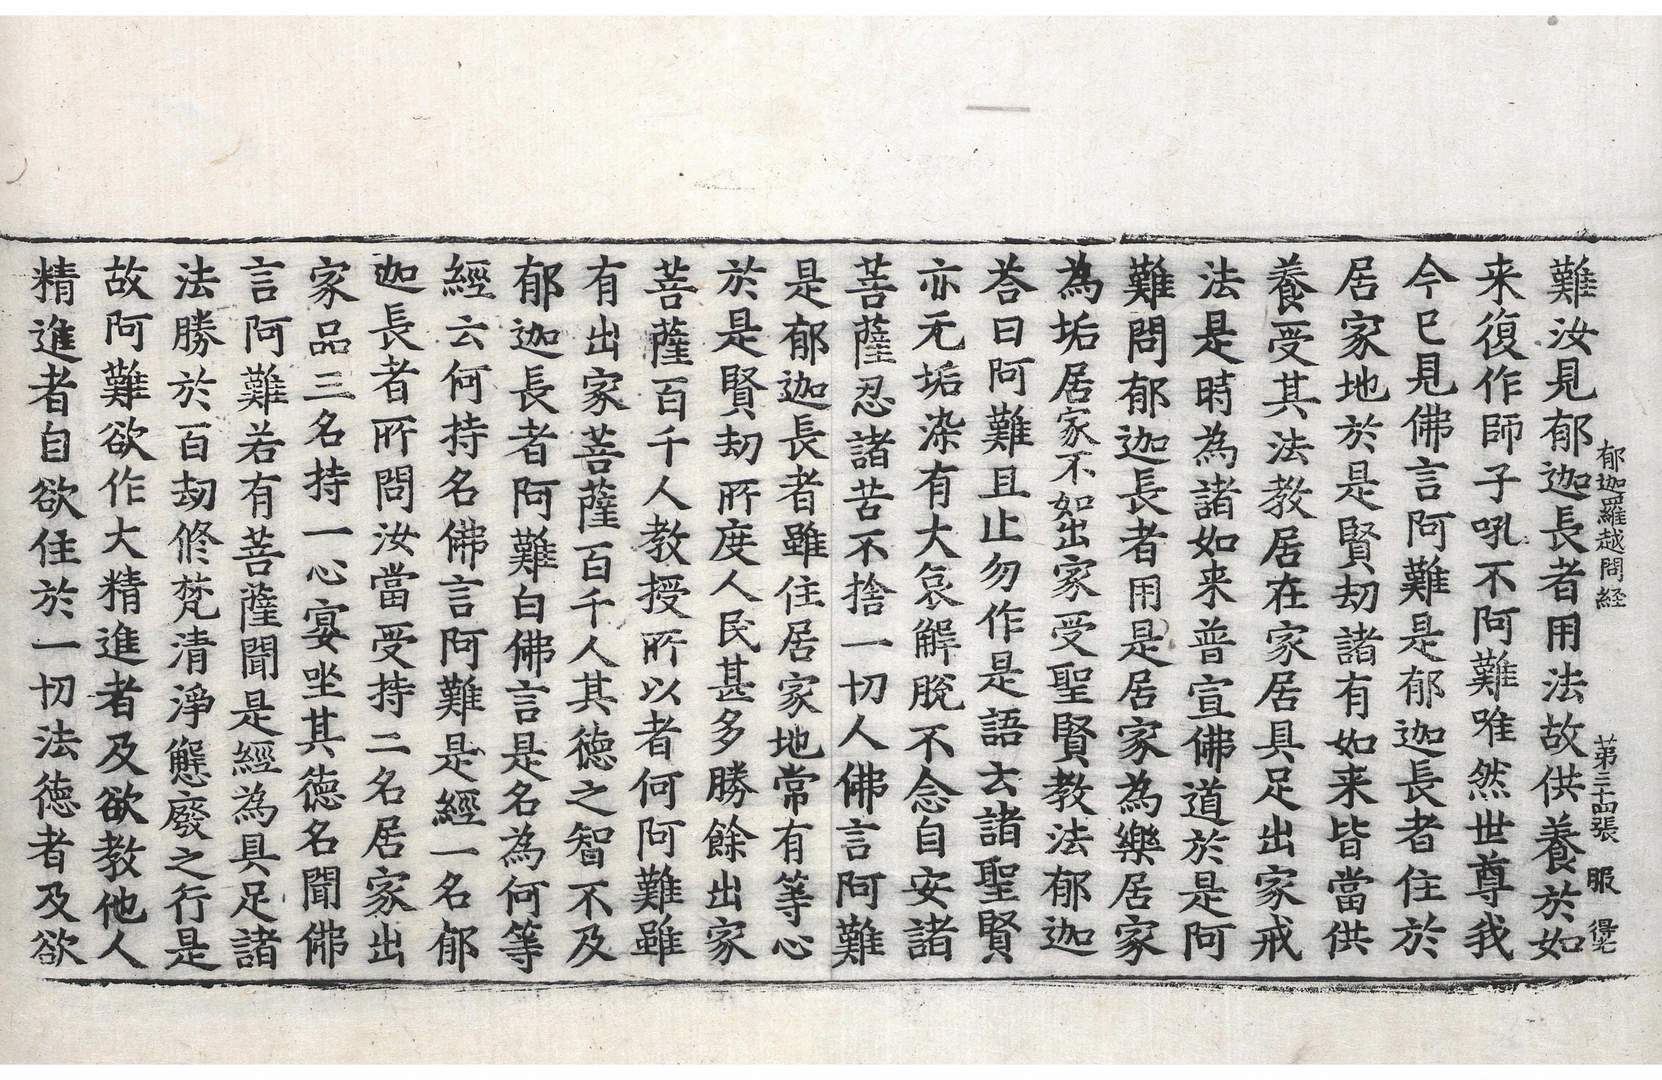 郁迦羅越問経 第三十四張 服
難汝見郁迦長者用法故供養於如
来復作師子吼不阿難唯然世尊我
今已見佛言阿難是郁迦長者住於
居家地於是賢劫諸有如来皆當供
養受其法教居在家居具足出家戒
法是時為諸如来普宣佛道於是阿
難問郁迦長者用是居家為樂居家
為垢居家不如出家受聖賢教法郁迦
荅曰阿難且止勿作是語去諸聖賢
亦无垢染有大哀解脫不念自安諸
菩薩忍諸苦不捨一切人佛言阿難
是郁迦長者雖住居家地常有等心
於是賢劫所度人民甚多勝餘出家
菩薩百千人教授所以者何阿難雖
有出家菩薩百千人其德之智不及
郁迦長者阿難白佛言是名為何等
經云何持名佛言阿難是經一名郁
迦長者所問汝當受持二名居家出
家品三名持一心宴坐其德名聞佛
言阿難若有菩薩聞是經為具足諸
法勝於百劫修梵清淨懈廢之行是
故阿難欲作大精進者及欲教他人
精進者自欲住於一切法德者及欲